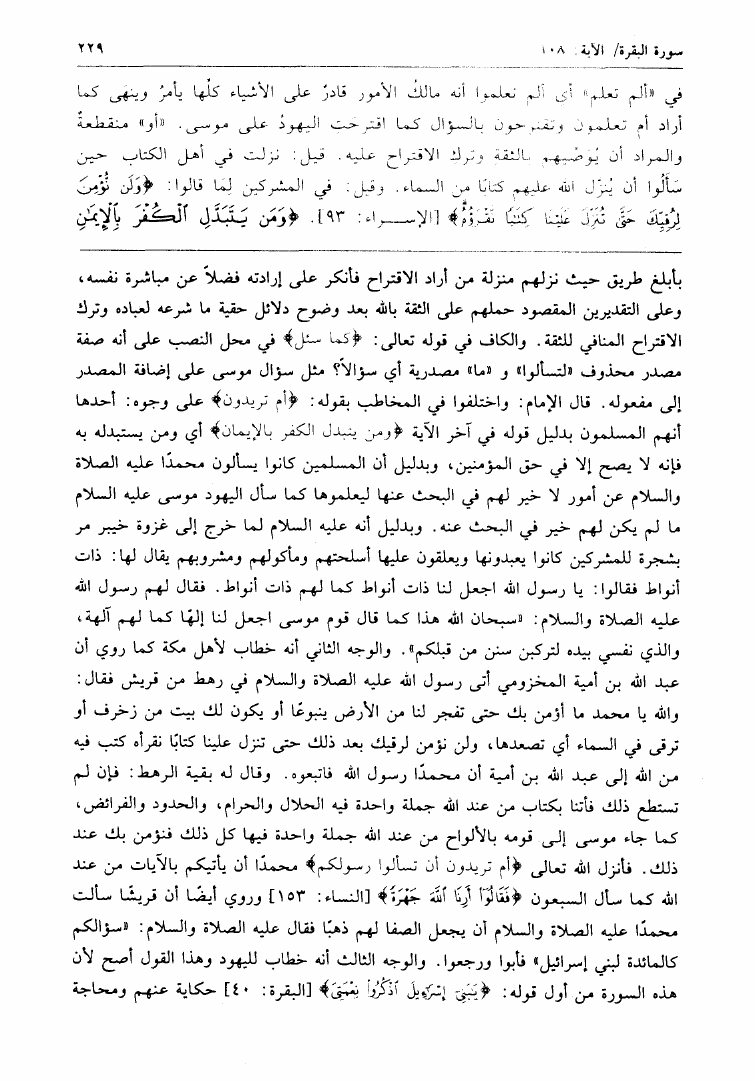 سورة البقرة/ الآية: ١٠٨
٢٢٩
في «ألم تعلم» أي ألم تعلموا أنه مالك الأمور قادرٌ على الأشياء كلّها يأمرُ وينهَى كما
أراد أم تعلمون وتقترحون بالسؤال كما اقترحت اليهودُ على موسى. «أو» منقطعةٌ
والمراد أن يُوَصّيهم بالثقة وترك الاقتراح عليه. قيل: نزلت في أهل الكتاب حين
سَألُوا أن يُنزّل الله عليهم كتابًا من السماء. وقيل: في المشركين لِمَا قالوا: ﴿وَلَن نُّؤْمِنَ
لِرُقِيِّكَ حَتَّىٰ تُنَزِّلَ عَلَيْنَا كِتَٰبًا نَّقْرَؤُهُ﴾ [الإســراء: ٩٣]. ﴿وَمَن يَـتَبَدَّلِ ٱلْكُفْرَ بِٱلْإِيمَٰنِ
بأبلغ طريق حيث نزلهم منزلة من أراد الاقتراح فأنكر على إرادته فضلاً عن مباشرة نفسه،
وعلى التقديرين المقصود حملهم على الثقة بالله بعد وضوح دلائل حقية ما شرعه لعباده وترك
الاقتراح المنافي للثقة. والكاف في قوله تعالى: ﴿كما سئل﴾ في محل النصب على أنه صفة
مصدر محذوف «لتسألوا» و «ما» مصدرية أي سؤالاً؟ مثل سؤال موسى على إضافة المصدر
إلى مفعوله. قال الإمام: واختلفوا في المخاطب بقوله: ﴿أم تريدون﴾ على وجوه: أحدها
أنهم المسلمون بدليل قوله في آخر الآية ﴿ومن يتبدل الكفر بالإيمان﴾ أي ومن يستبدله به
فإنه لا يصح إلا في حق المؤمنين، وبدليل أن المسلمين كانوا يسألون محمدًا عليه الصلاة
والسلام عن أمور لا خير لهم في البحث عنها ليعلموها كما سأل اليهود موسى عليه السلام
ما لم يكن لهم خير في البحث عنه. وبدليل أنه عليه السلام لما خرج إلى غزوة خيبر مر
بشجرة للمشركين كانوا يعبدونها ويعلقون عليها أسلحتهم ومأكولهم ومشروبهم يقال لها: ذات
أنواط فقالوا: يا رسول الله اجعل لنا ذات أنواط كما لهم ذات أنواط. فقال لهم رسول الله
عليه الصلاة والسلام: «سبحان الله هذا كما قال قوم موسى اجعل لنا إلهًا كما لهم آلهة،
والذي نفسي بيده لتركبن سنن من قبلكم». والوجه الثاني أنه خطاب لأهل مكة كما روي أن
عبد الله بن أمية المخزومي أتى رسول الله عليه الصلاة والسلام في رهط من قريش فقال:
والله يا محمد ما أؤمن بك حتى تفجر لنا من الأرض ينبوعًا أو يكون لك بيت من زخرف أو
ترقى في السماء أي تصعدها، ولن نؤمن لرقيك بعد ذلك حتى تنزل علينا كتابًا نقرأه كتب فيه
من الله إلى عبد الله بن أمية أن محمدًا رسول الله فاتبعوه. وقال له بقية الرهط: فإن لم
تستطع ذلك فأتنا بكتاب من عند الله جملة واحدة فيه الحلال والحرام، والحدود والفرائض،
كما جاء موسى إلى قومه بالألواح من عند الله جملة واحدة فيها كل ذلك فنؤمن بك عند
ذلك. فأنزل الله تعالى ﴿أم تريدون أن تسألوا رسولكم﴾ محمدًا أن يأتيكم بالآيات من عند
الله كما سأل السبعون ﴿فَقَالُوٓا۟ أَرِنَا ٱللَّهَ جَهْرَةً﴾ [النساء: ١٥٣] وروي أيضًا أن قريشًا سألت
محمدًا عليه الصلاة والسلام أن يجعل الصفا لهم ذهبًا فقال عليه الصلاة والسلام: «سؤالكم
كالمائدة لبني إسرائيل» فأبوا ورجعوا. والوجه الثالث أنه خطاب لليهود وهذا القول أصح لأن
هذه السورة من أول قوله: ﴿يَٰبَنِىٓ إِسْرَٰٓءِيلَ ٱذْكُرُوا۟ نِعْمَتِىَ﴾ [البقرة: ٤٠] حكاية عنهم ومحاجة